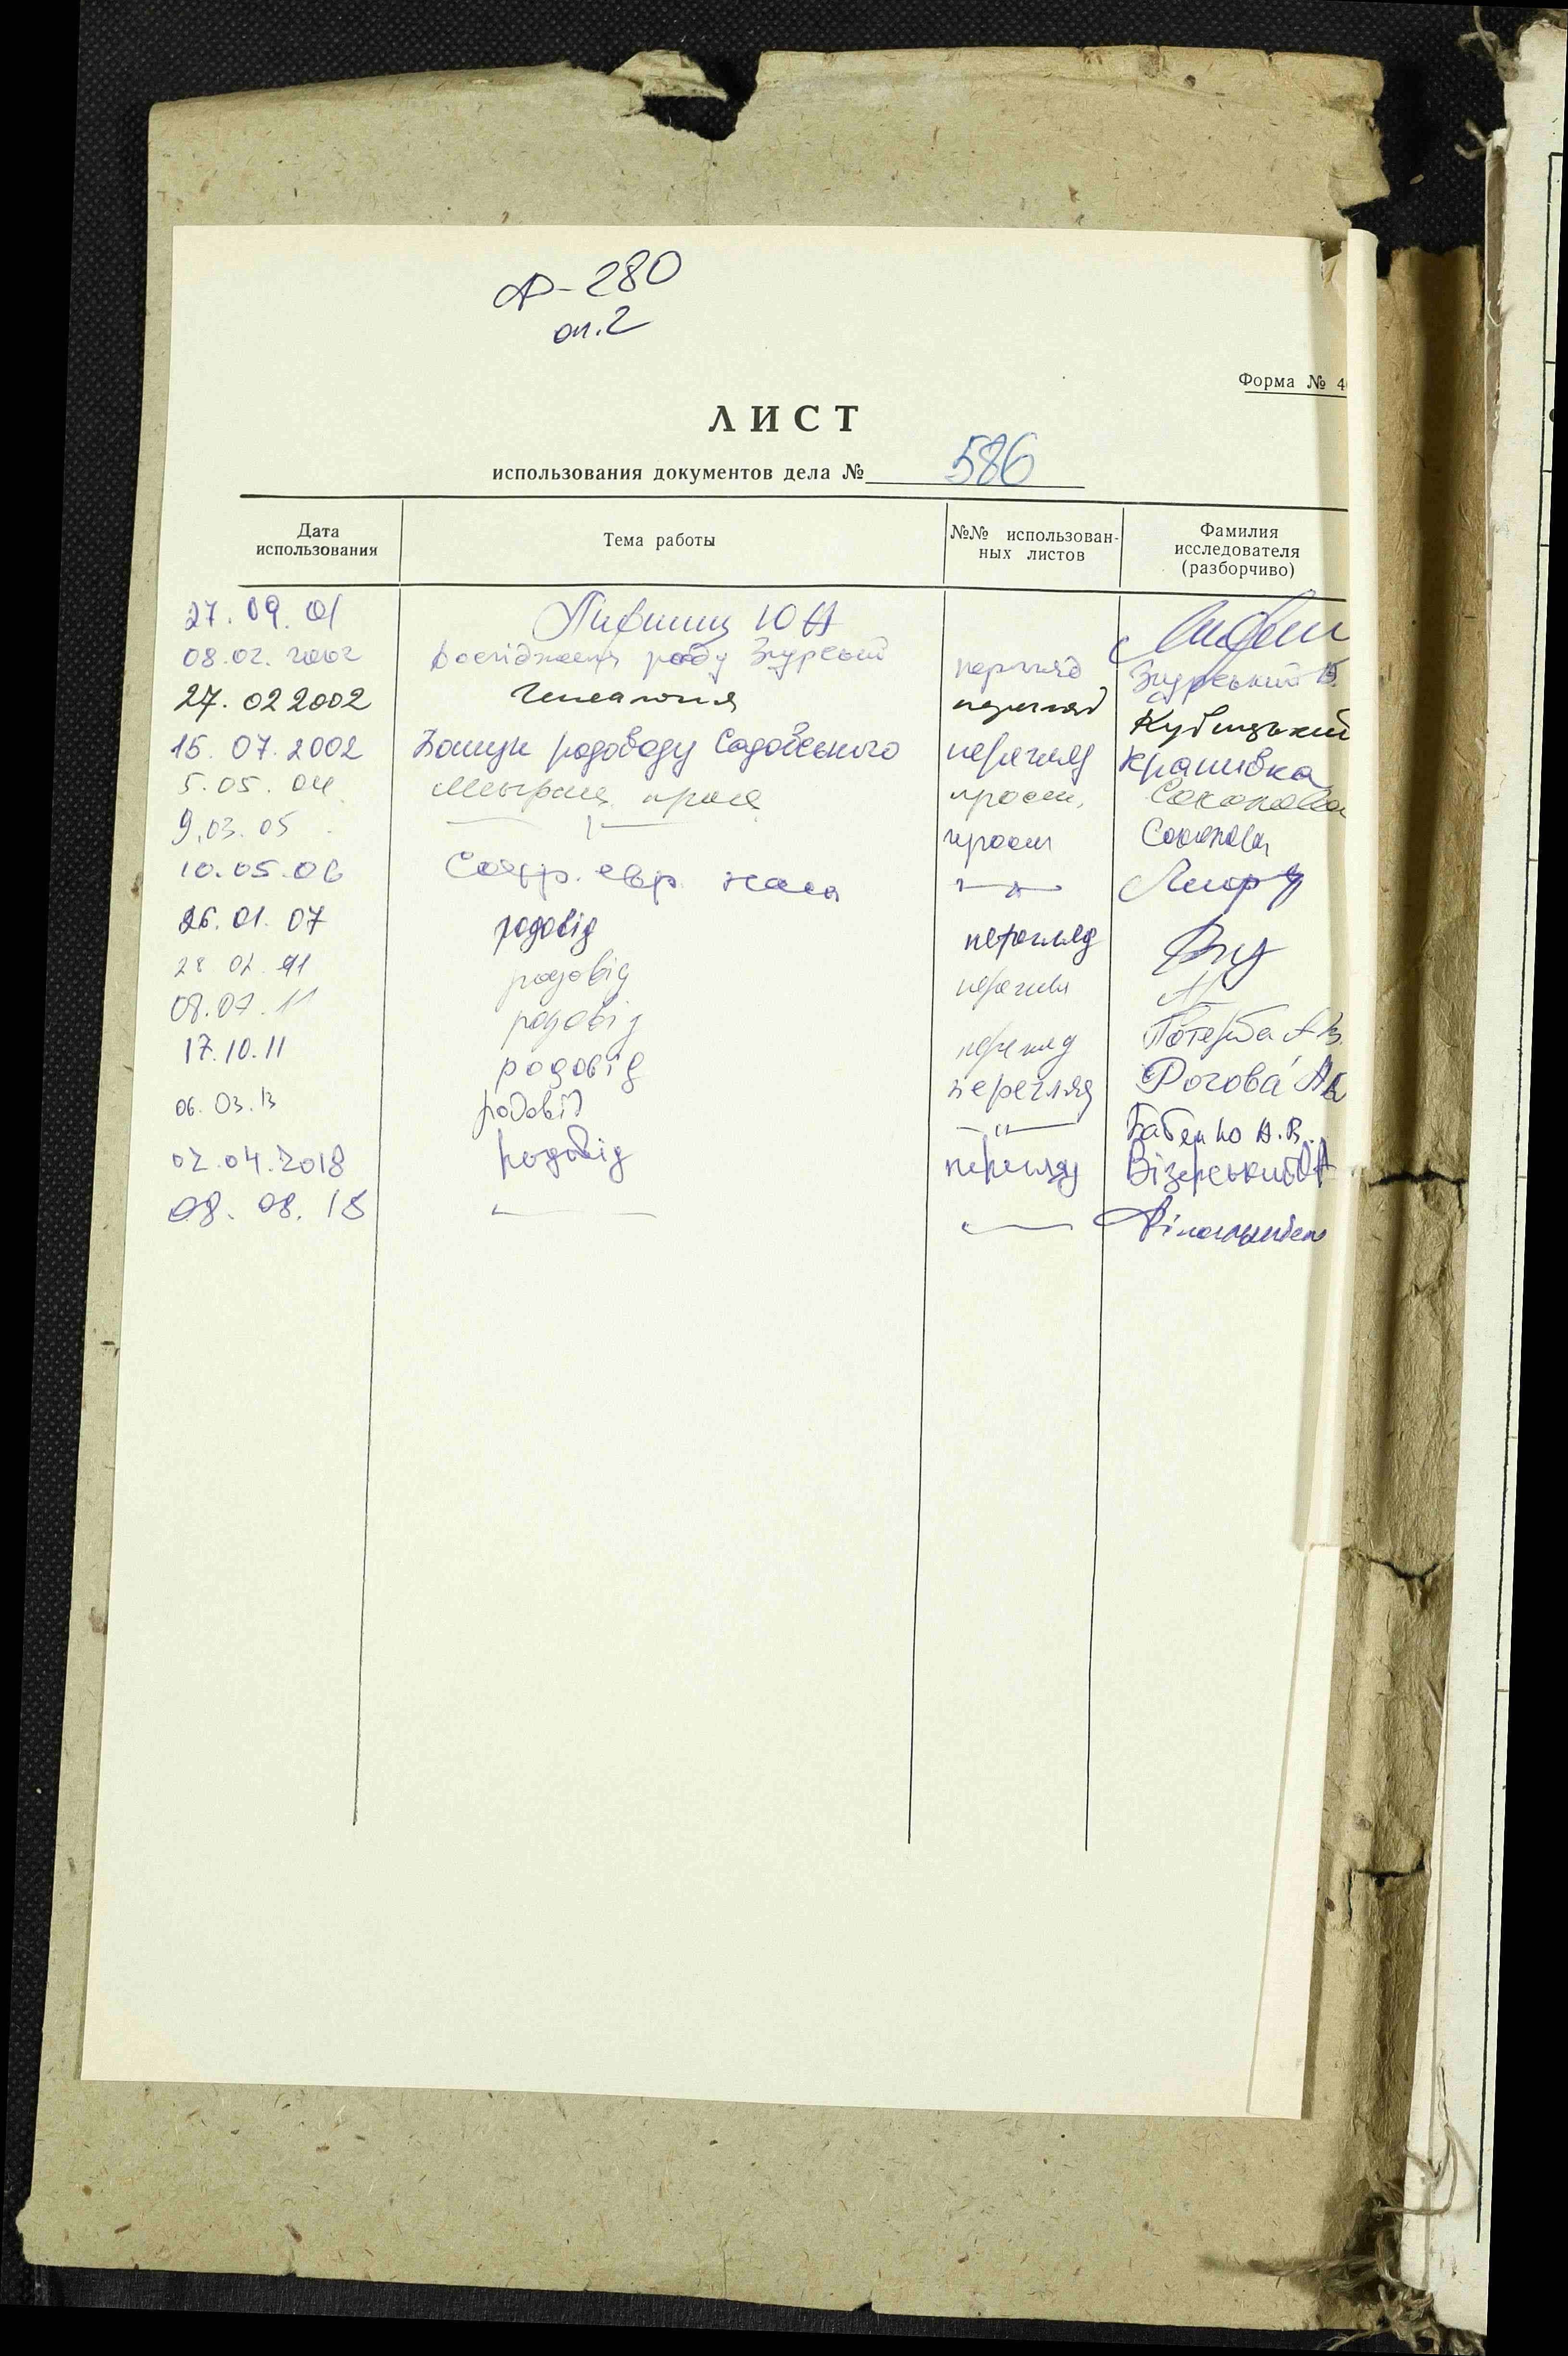 Ф-280
оп.2
Форма № 4
ЛИСТ
использования документов дела № 586
Дата использования Тема работы №№ использован- ных листов Фамилия исследователя (разборчиво)
27.09.01 Лифшиц ЮА
08.02.2002 Дослідження роду Згурський перегляд Згурський
27.02 2002 Генеалогія перегляд Кубицький
15.07.2002 Пошук родоводу Садовського перегляд Крапивка
5.05.04 просм. Соколова
9.03.05 просм Соколова
10.05.06 евр
26.01.07 родовід перегляд
28 02 родовід перегляд
08.07.11 родовід перегляд Потерба А В.
17.10.11 родовід перегляд Рогова А
06.03.13 родовід —"— Бабенко А.В.
02.04.2018 родовід перегляд Візерський
08.08.18